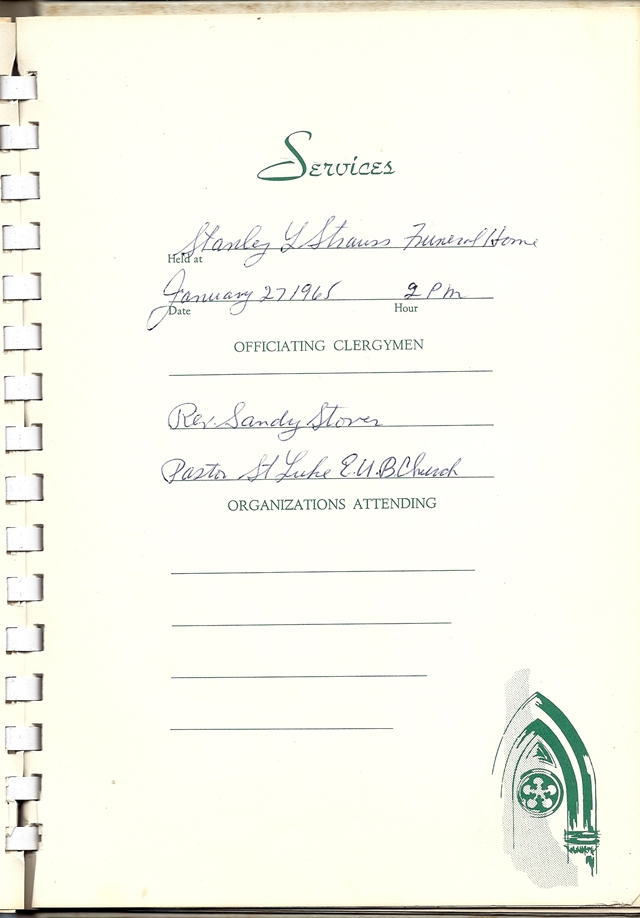 Services
Stanley L Strauss Funeral Home
Held at
January 27 1965 2 PM
Date Hour
OFFICIATING CLERGYMEN
Rev. Sandy Stover
Pastor St Luke E.U.B. Church
ORGANIZATIONS ATTENDING